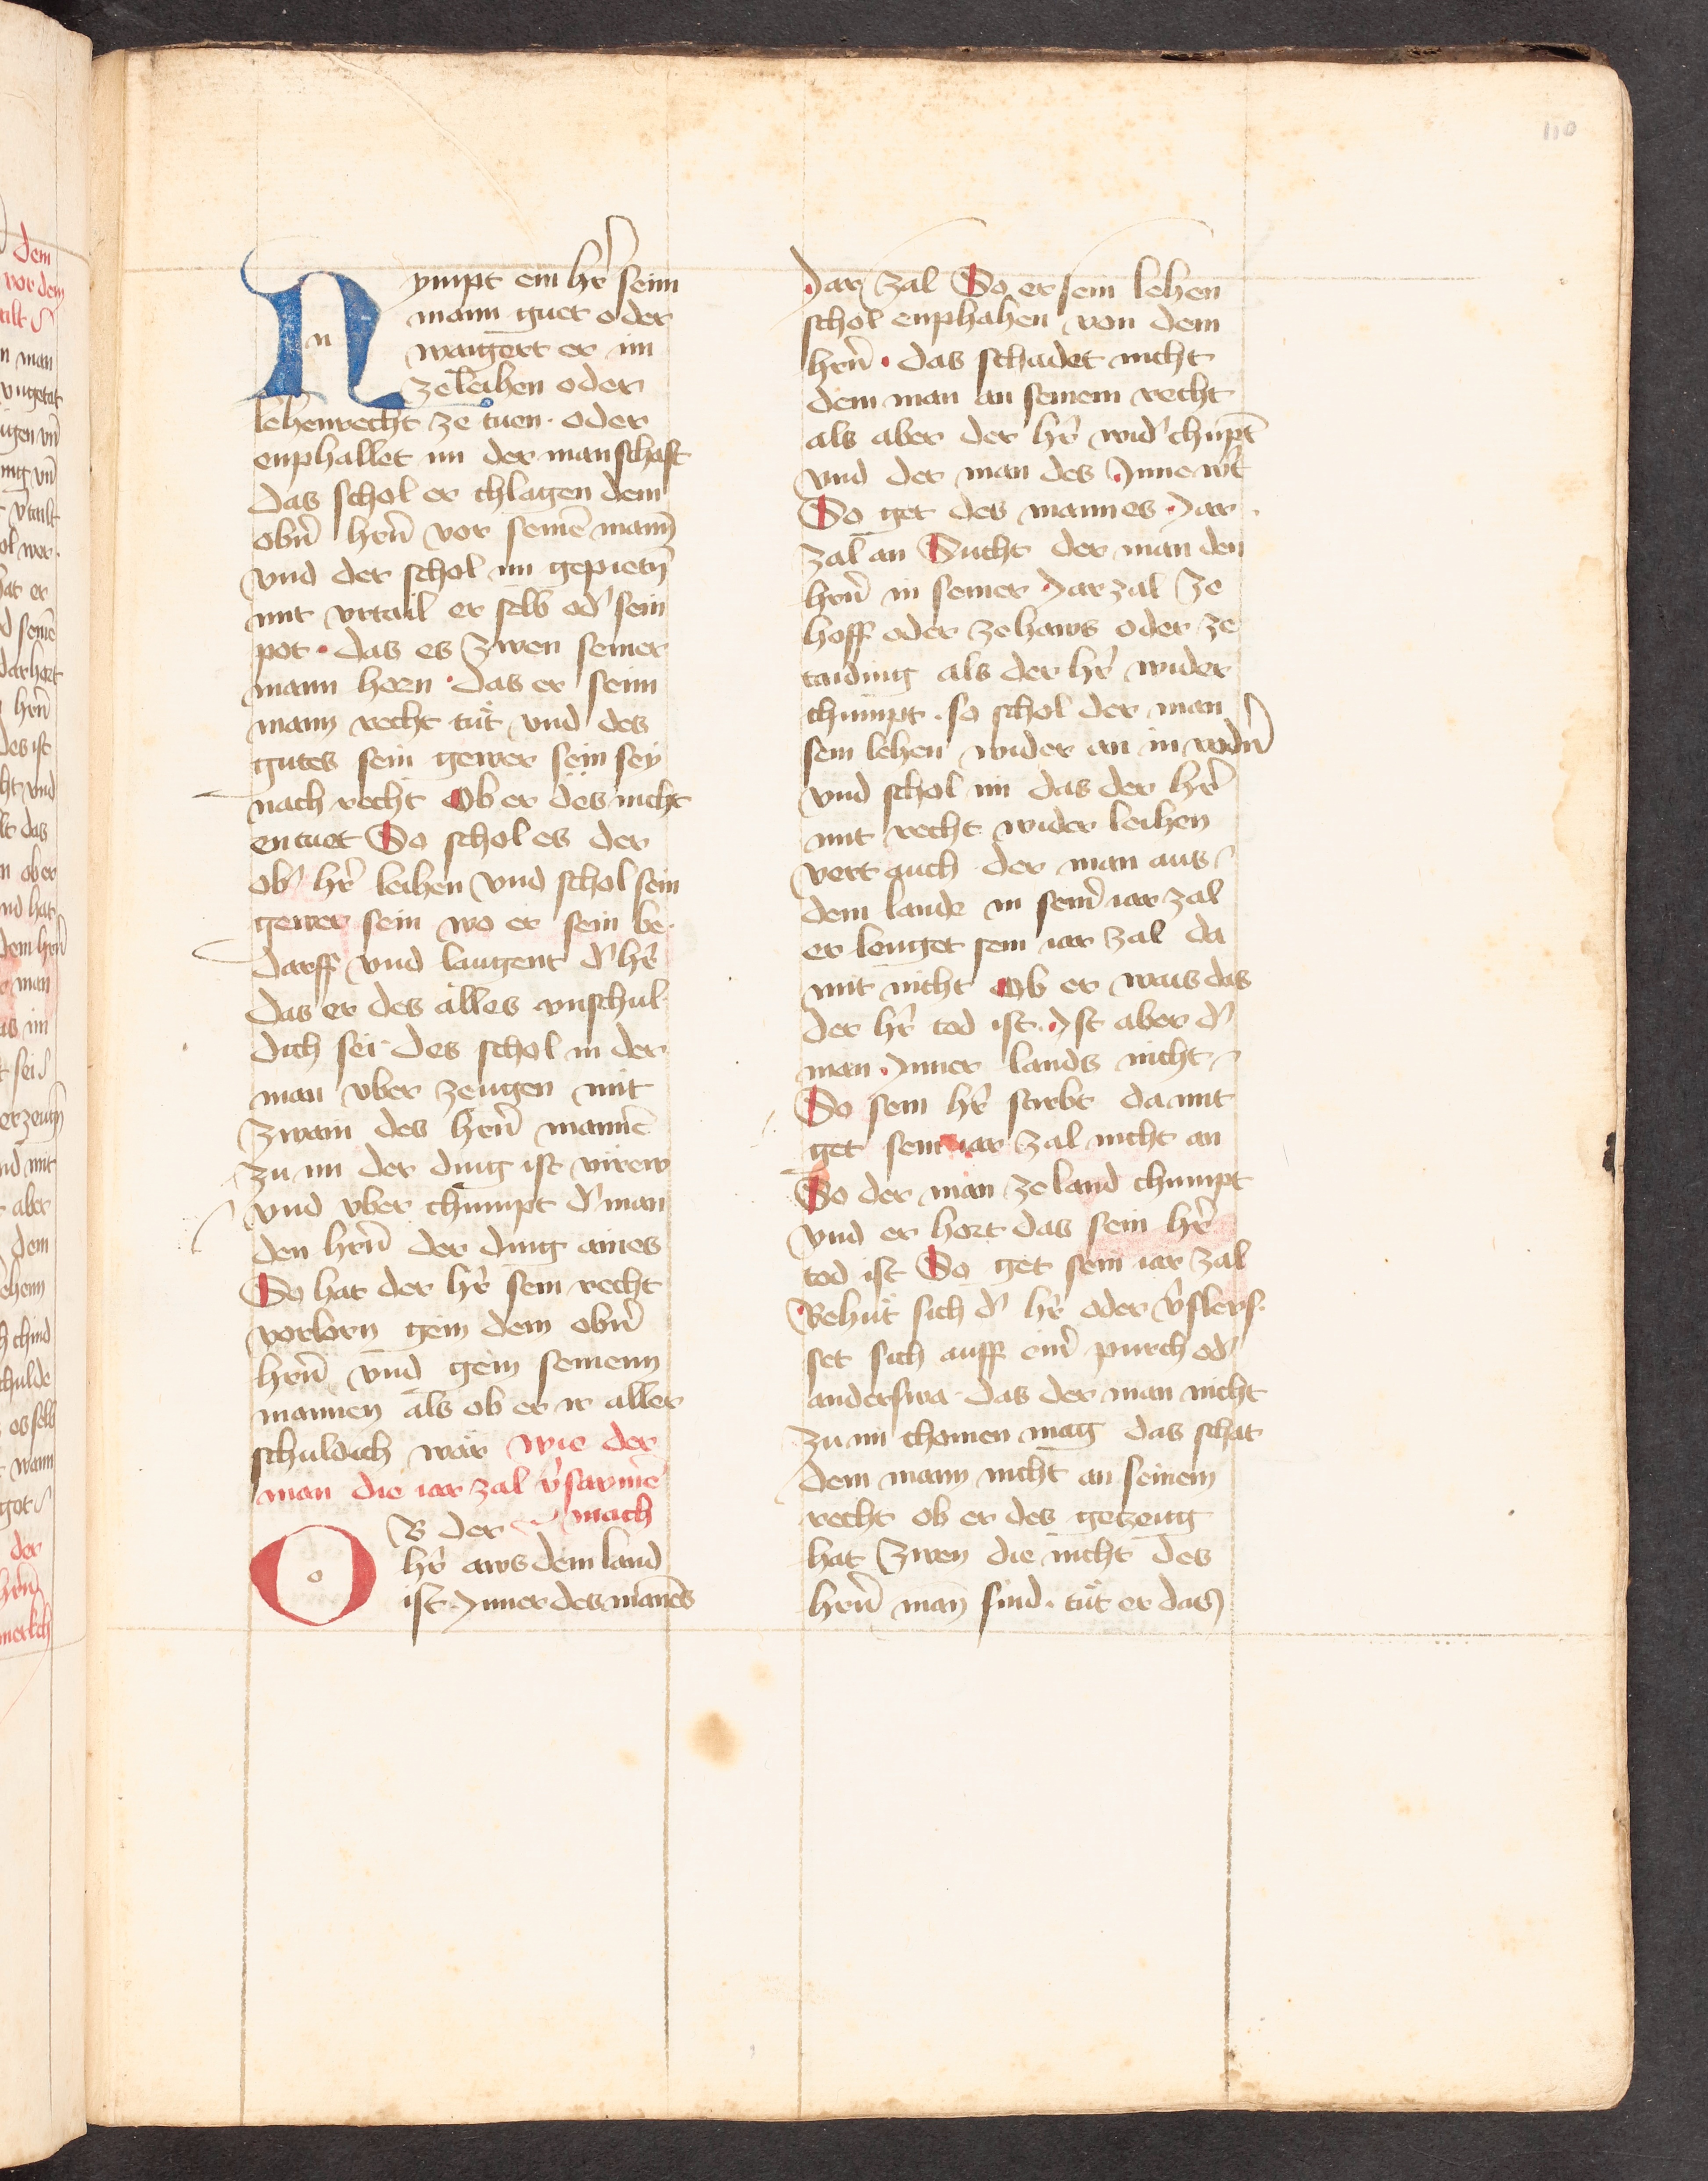 110
Nympt ein hr̄ seim
mann guet oder
waigert er im
ze leihen oder
lehenrecht ze tuen · oder
enphallet im der manschaft
das schol er chlagen dem
obn̄ hrn̄ vor seinē mann
vnd der schol im gepietn̄
mit vrtail er selb od' sein
pot · das es zwen seiner
mann horn · das er seim
mann recht tüt vnd des
gutes sein gewer sein sey
nach recht Ob er des nicht
entuet So schol es der
ob' hr̄ leihen vnd schol sein
gewer sein wo er sein be-
darff vnd laugent d' hr̄
das er des alles vnschul
dich sei · des schol in der
man vber zeugen mit
zwain des hrn̄ mannē
zu im der ding ist virew
vnd vber chumpt d' man
den hrn̄ der ding aines
So hat der hr̄ sein recht
vorlorn gein dem obn̄
hrn̄ vnd gein seinenn
mannen als ob er ir aller
schuldich wär wie der
man die iar zal v'saumē
mach
OB der
hr̄ aws dem land
ist Inner des manēs
Jar zal So er sein lehen
schol enphahen von dem
hrn̄ · das schadet nicht
dem man an seinem recht
als aber der hr̄ wid' chüpt
vnd der man des Inne wt̄
So get des mannes Jar
zal an Sucht der man den
hrn̄ in seiner Jar zal ze
hoff oder ze haws oder ze
taiding als der hr̄ wider
chumpt · so schol der man
sein lehen wider an in vodn̄
vnd schol im das der hr̄
mit recht wider leihen
vert auch der man aus
dem lande in sein̄ iar zal
er lenget sein iar zal da
mit nicht Ob er wais das
der hr̄ tod ist · Ist aber d'
man Inner lands nicht
So sein hr̄ stirbt da mit
get sein iar zal nicht an
So der man ze land chumpt
vnd er hort das sein hr̄
tod ist So get sein iar zal
Behüt sich d' hr̄ oder v'slers-
set sich auff ein̄ purch od'
anderswa · das der man nicht
zu im chomen mag das schat
dem mann nicht an seinem
recht ob er des getzeug
hat zwen die nicht des
hrn̄ man̄ sind · tüt er das